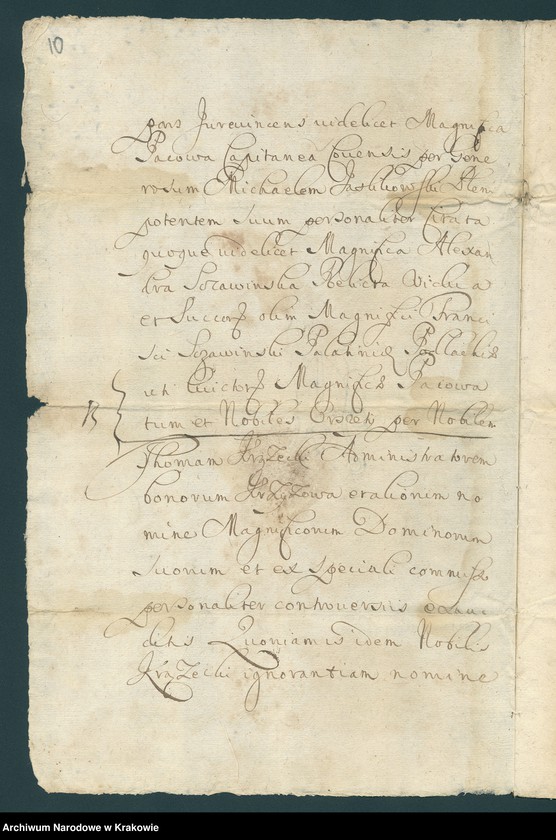 10
pars Jurevincens videlicet Magnifica
Pacowa Capitanea Covensis per Gene
rosum Michaelem Plen
potentem suum personaliter Citata
quoque videlicet Magnifica Alexan
dra Sczawinska Relicta Vidua
et Succors olim Magnifici Franci
sci Sczawinski Palatinid
uti Magnifics Pacowa
tum et Nobiles per Nobilem
B
Thomam Krzzecki Administratorem
bonorum Krzyzowa et aliorum no
mine Magnificorum Dominorum
suorum et ex speciali commiss
personaliter controversiis exau
ditis Quoniam is idem Nobilis
Krzzecki ignorantiam nomine
Archiwum Narodowe w Krakowie